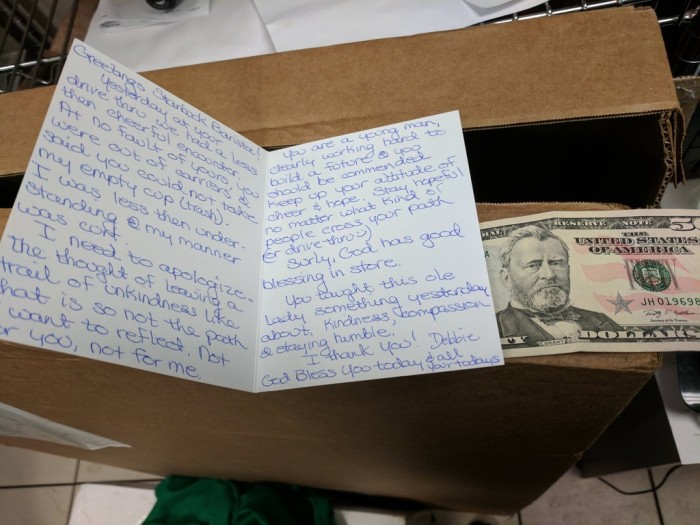 Greetings Starbuck Barista!
Yesterday, at your
drive thru we had a less
then cheerful encounter.
At no fault of yours, you
were out of carriers &
said you could not take
my empty cup (trash).
I was less then under-
standing & my manner
was curt.
I need to apologize.
The thought of leaving a
trail of unkindness like
that is so not the path
I want to reflect. Not
for you, not for me.
You are a young man,
clearly working hard to
build a future & you
should be commended.
Keep up your attitude of
cheer & hope. Stay hopeful
no matter what kind of
people cross your path
(or drive thru :)
Surly, God has good
blessing in store.
You taught this ole
Lady something yesterday
about, kindness, compassion
& staying humble.
I thank You! Debbie
God Bless You today & all
your todays
RESERVE NOTE
THE
UNITED STATES
OF AMERICA
JH01969
DOLLARS